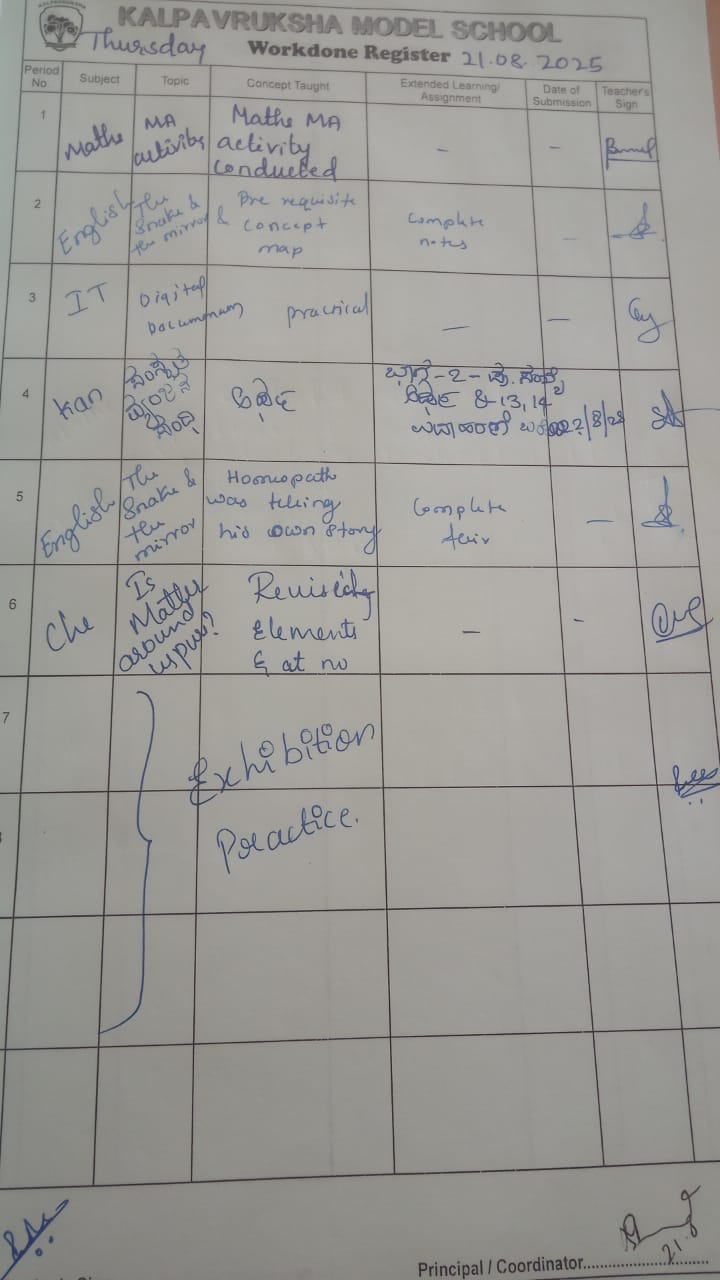 KALPAVRUKSHA MODEL SCHOOL
Thursday Workdone Register 21.08.2025
Period No. Subject Topic Concept Taught Extended Learning/ Assignment Date of Submission Teacher's Sign
1 Maths MA activity Maths MA activity conducted - -
2 English The Snake & the mirror Pre requisite & concept map Complete notes -
3 IT Digital practical - -
4 Kan ಸಂಸ್ಕೃತ ವ್ಯಂಜನ ಸಂಧಿ
5 English The Snake & the mirror Homeopath was telling his own story Complete -
6 Che Is Matter around us pure? Elements & at no - -
7 Exhibition
Practice.
Principal / Coordinator
21.8